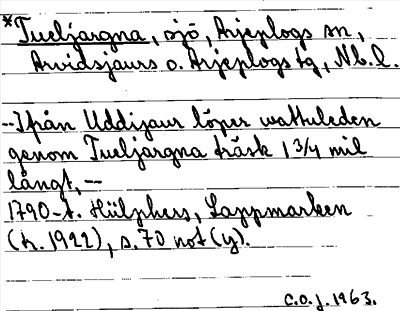 *Tueljaregna, sjö, Arjeplogs sn,
Arvidsjaurs o. Arjeplogs tg, Nb.l.
--Ifrån Uddijaur löper wattuleden
genom Tueljaregna träsk 1 3/4 mil
långt, --
1790-t. Hülphers, Lappmarken
(tr. 1922), s. 70 not (y).
C.O.J. 1963.